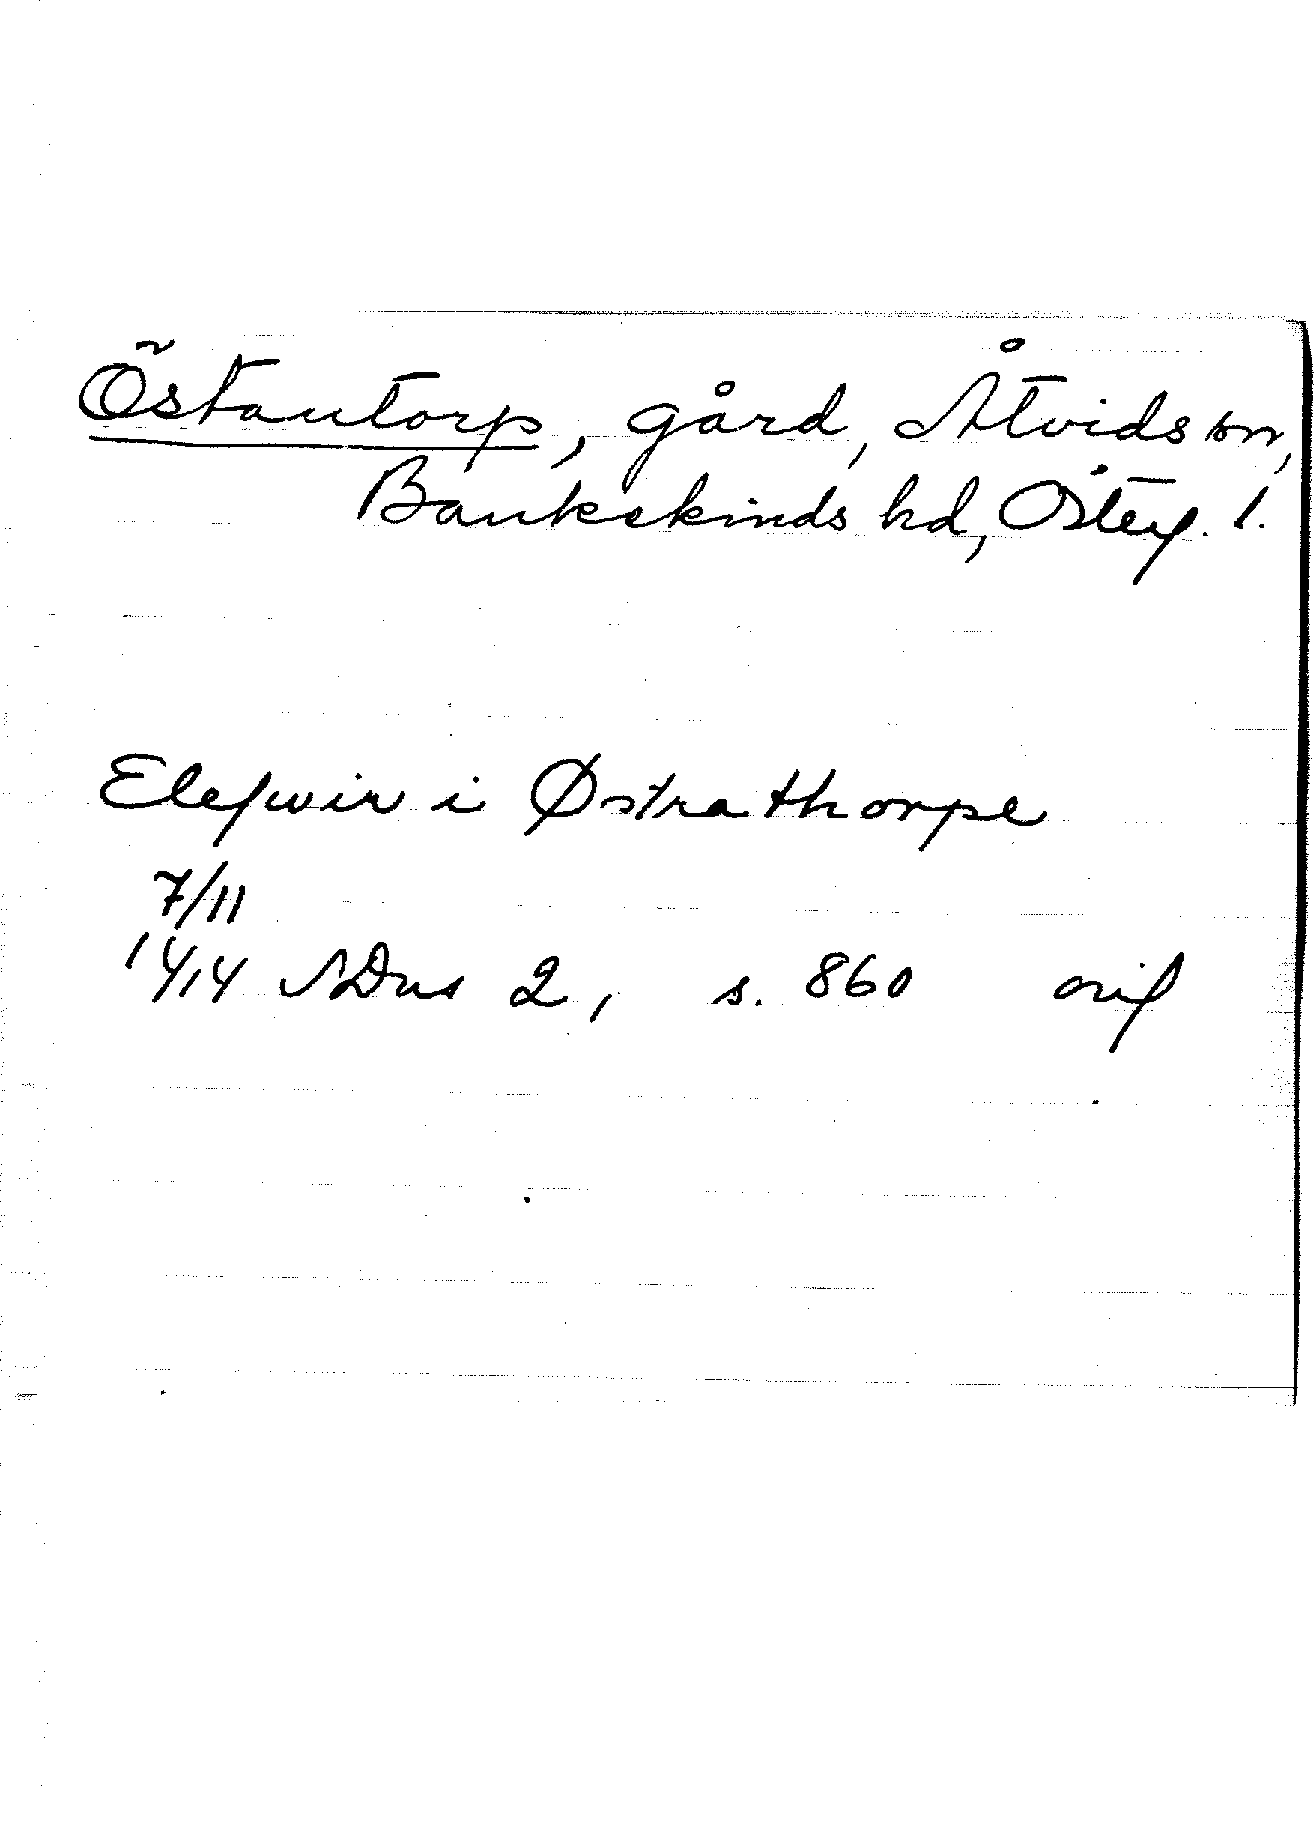 Östantorp, gård, Åtvids sn,
Bankekinds hd, Österg. l.
Elefwir i Østrathorpe
7/11
1414 SDns 2, s. 860 orig